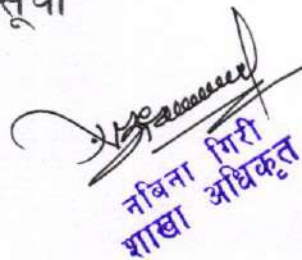 सूची
नबिना गिरी
शाखा अधिकृत